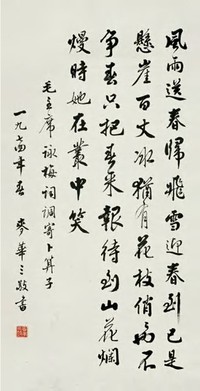 風雨送春歸飛雪迎春到已是
懸崖百丈冰猶有花枝俏俏不
争春只把春來報待到山花爛
熳時她在叢中笑
毛主席詠梅詞調寄卜算子
一九七四年春 麥華三敬書